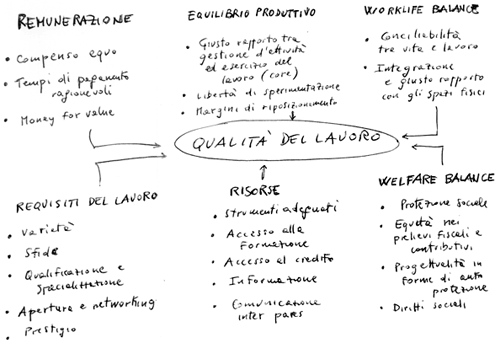 REMUNERAZIONE
• Compenso equo
• Tempi di pagamento
ragionevoli
• Money for value
EQUILIBRIO PRODUTTIVO
• Giusto rapporto tra
gestione d'attività
ed esercizio del
lavoro (core)
• Libertà di sperimentazione
• Margini di riposizionamento
WORKLIFE BALANCE
• Conciliabilità
tra vita e lavoro
• Integrazione
e giusto rapporto
con gli spazi fisici
QUALITÀ DEL LAVORO
REQUISITI DEL LAVORO
• Varietà
• Sfida
• Qualificazione e
specializzazione
• Apertura e networking
• Prestigio
RISORSE
• Strumenti adeguati
• Accesso alla
formazione
• Accesso al credito
• Informazione
• Comunicazione
inter pares
WELFARE BALANCE
• Protezione sociale
• Equità nei
prelievi fiscali e
contributivi
• Progettualità in
forme di auto
protezione
• Diritti sociali